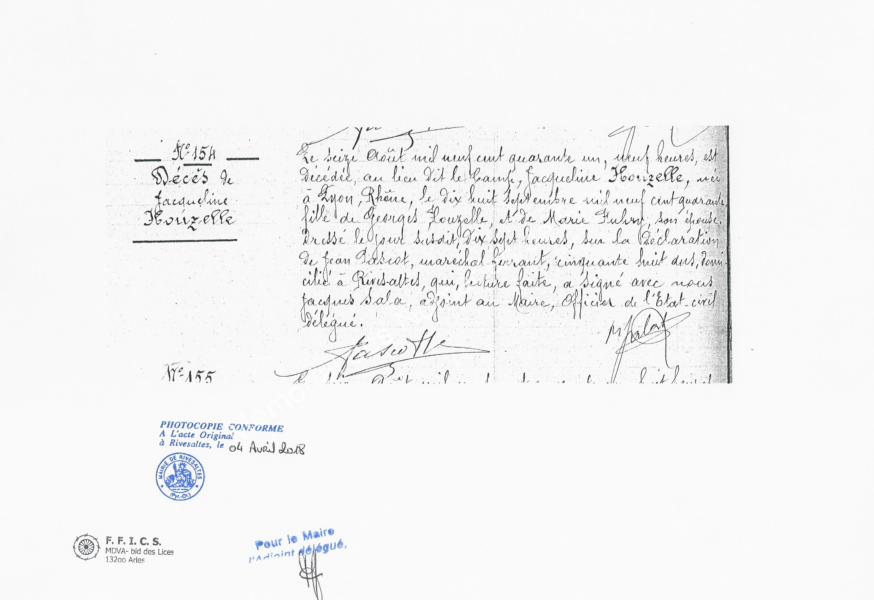 N° 154
Décès de
Jacqueline
Houzelle
Le seize Août mil neuf cent quarante un, neuf heures, est
décédée, au lieu dit le Camp, Jacqueline Houzelle, née
à Lyon, Rhône, le dix huit septembre mil neuf cent quarante
fille de Georges Houzelle, et de Marie son épouse.
Dressé le jour susdit, dix sept heures, sur la Déclaration
de Jean Pascot, maréchal ferrant, cinquante huit ans, domi-
cilié à Rivesaltes, qui, lecture faite, a signé avec nous
Jacques Sala, adjoint au Maire, Officier de l'Etat-civil
délégué.
N° 155
PHOTOCOPIE CONFORME
A L'acte Original
à Rivesaltes, le 04 Avril 2018
MAIRIE DE RIVESALTES
(Pyr.-Or.)
F. F. I. C. S.
MDVA- bld des Lices
13200 Arles
Pour le Maire
l'Adjoint délégué,